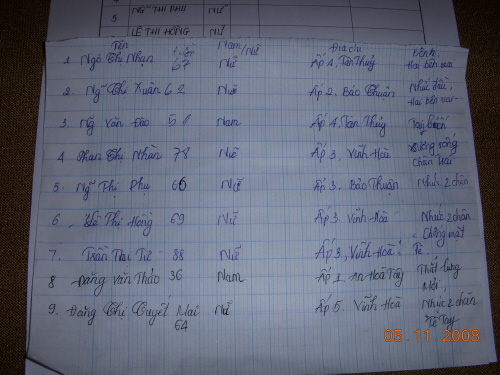 5 NG~ THỊ PHU NỮ
LÊ THỊ HỒNG NỮ
Tên Tuổi Nam/Nữ Địa chỉ Bệnh
1 Ngô Thị Nhan 67 Nữ Ấp 4, Tân Thủy Hai bên vai
2. Ng~ Thị Xuân 62 Nữ Ấp 2. Bảo Thuận Nhức đầu,
Hai bên vai
3. Ng Văn Đào Nam Ấp 4, Tân Thủy
4 Phan Thị Nhàn 78 Nữ Ấp 3, Vĩnh Hoà Xương sống
Chân Hai
5. Ng~ Thị Phu 66 Nữ Ấp 3. Bảo Thuận Nhức 2 chân
6 Lê Thị Hồng 69 Nữ Ấp 3. Vĩnh Hoà Nhức 2 chân
Chóng mặt
7. Trần Thị Tư 88 Nữ Ấp 3, Vĩnh Hoà Tê
8 Đặng Văn Thảo 36 Nam Ấp 1. An Hoà Tây Thắt lưng
Mỏi,
9. Đặng Thị Tuyết Mai Nữ Ấp 5. Vĩnh Hoà Nhức 2 chân
64 Tê Tay
05 11 2008